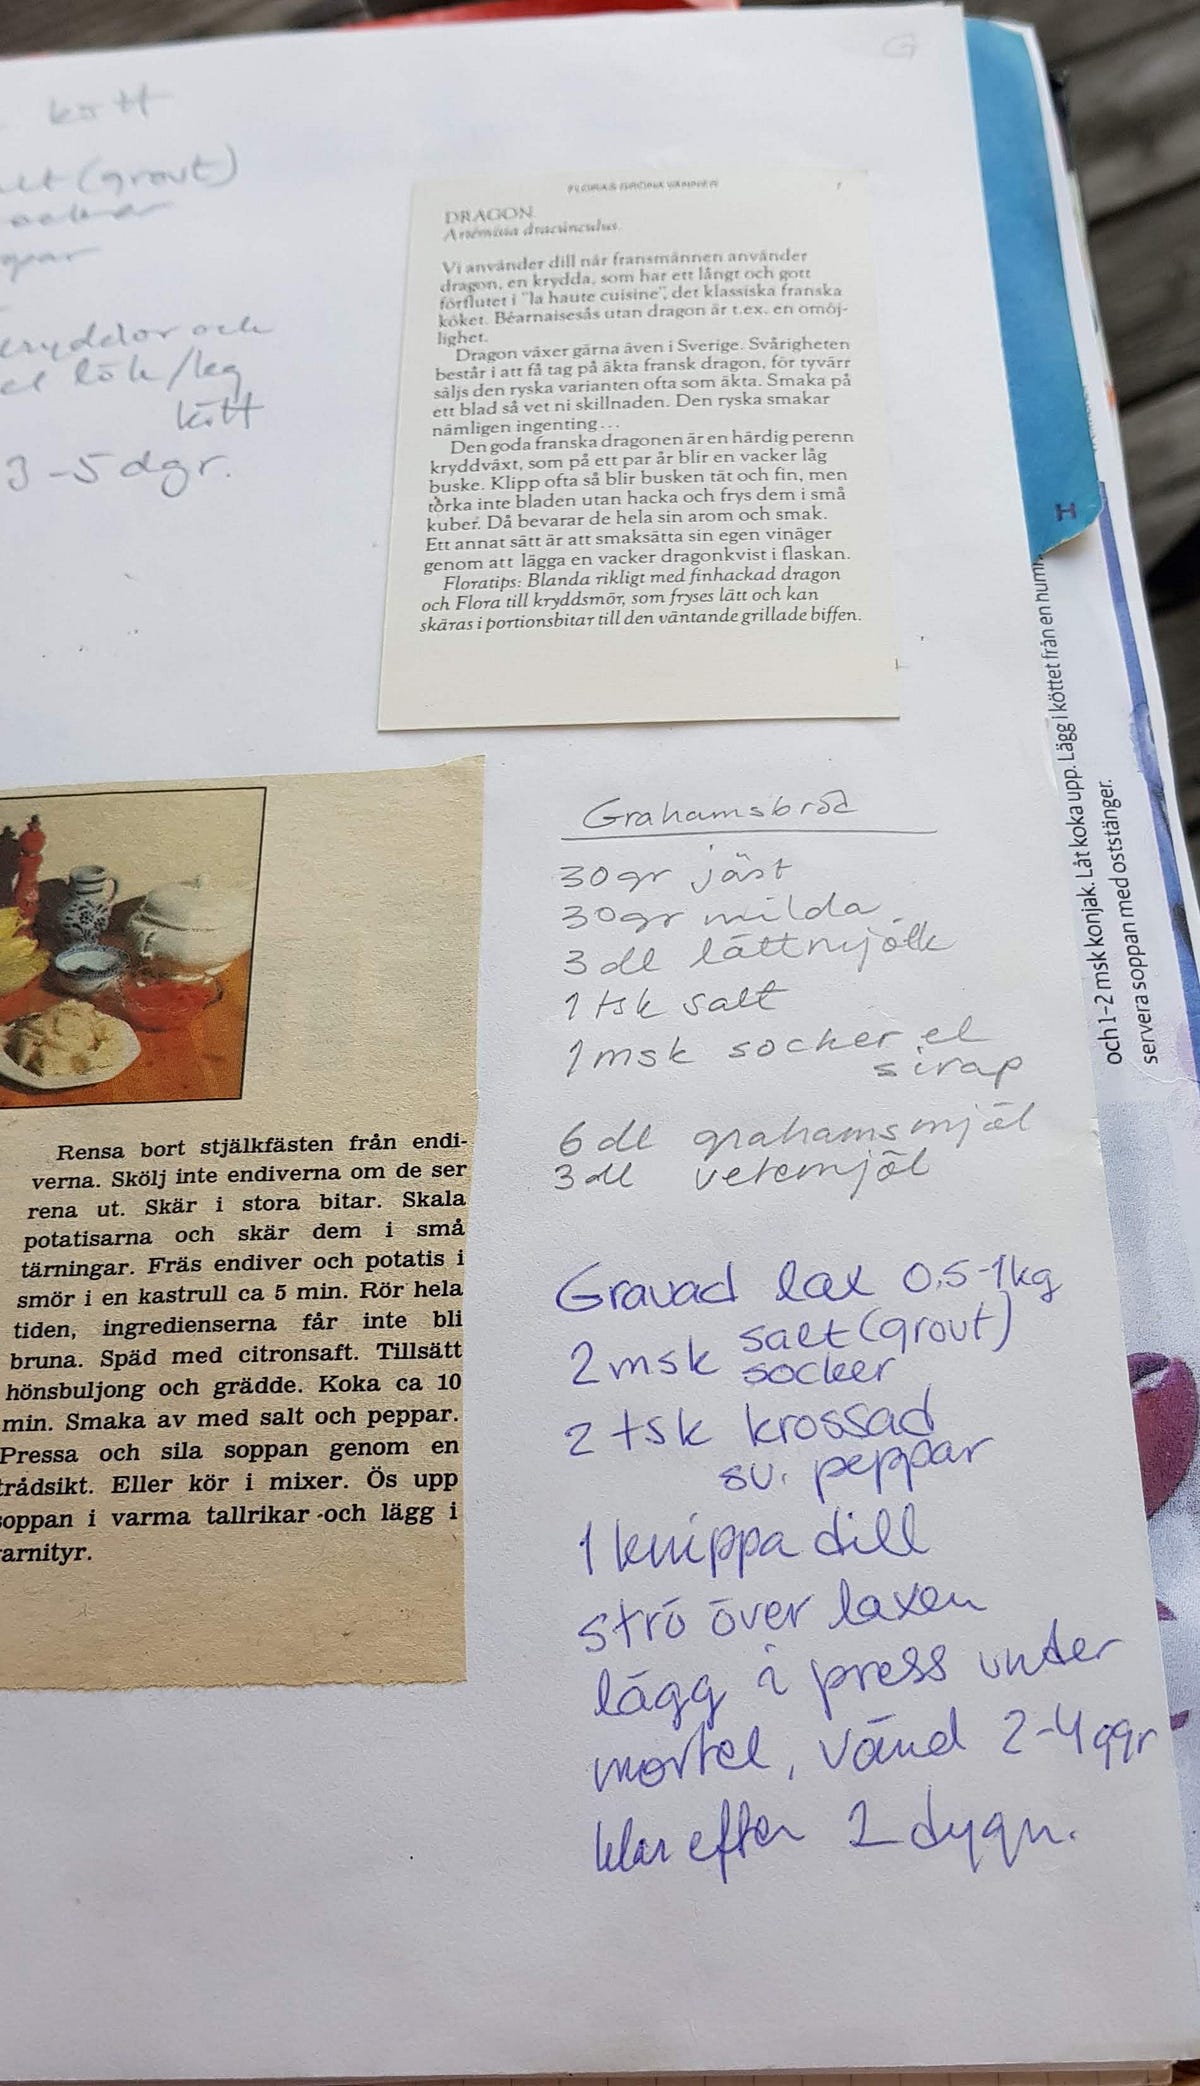 G
kött
(grovt)
socker
kryddor och
el lök/kg
kött
3-5 dgr.
FLORAS GRÖNA VÄNNER
DRAGON
Artemisia dracunculus.
Vi använder dill når fransmännen använder
dragon, en krydda, som har ett långt och gott
förflutet i "la haute cuisine", det klassiska franska
köket. Béarnaisesås utan dragon är t.ex. en omöj-
lighet.
Dragon växer gärna även i Sverige. Svårigheten
består i att få tag på äkta fransk dragon, för tyvärr
säljs den ryska varianten ofta som äkta. Smaka på
ett blad så vet ni skillnaden. Den ryska smakar
nämligen ingenting...
Den goda franska dragonen är en härdig perenn
kryddväxt, som på ett par år blir en vacker låg
buske. Klipp ofta så blir busken tät och fin, men
torka inte bladen utan hacka och frys dem i små
kuber. Då bevarar de hela sin arom och smak.
Ett annat sätt är att smaksätta sin egen vinäger
genom att lägga en vacker dragonkvist i flaskan.
Floratips: Blanda rikligt med finhackad dragon
och Flora till kryddsmör, som fryses lätt och kan
skäras i portionsbitar till den väntande grillade biffen.
H
och 1-2 msk konjak. Låt koka upp. Lägg i köttet från en
servera soppan med oststänger.
Grahamsbröd
30gr jäst
30gr milda
3 dl lättmjölk
1 tsk salt
1 msk socker el
sirap
6 dl grahamsmjöl
3 dl vetemjöl
Rensa bort stjälkfästen från endi-
verna. Skölj inte endiverna om de ser
rena ut. Skär i stora bitar. Skala
potatisarna och skär dem i små
tärningar. Fräs endiver och potatis i
smör i en kastrull ca 5 min. Rör hela
tiden, ingredienserna får inte bli
bruna. Späd med citronsaft. Tillsätt
hönsbuljong och grädde. Koka ca 10
min. Smaka av med salt och peppar.
Pressa och sila soppan genom en
trådsikt. Eller kör i mixer. Ös upp
soppan i varma tallrikar och lägg i
garnityr.
Gravad lax 0,5-1kg
2 msk salt (grovt)
socker
2 tsk krossad
sv. peppar
1 knippa dill
strö över laxen
lägg i press under
mortel, vänd 2-4 ggr
klar efter 2 dygn.